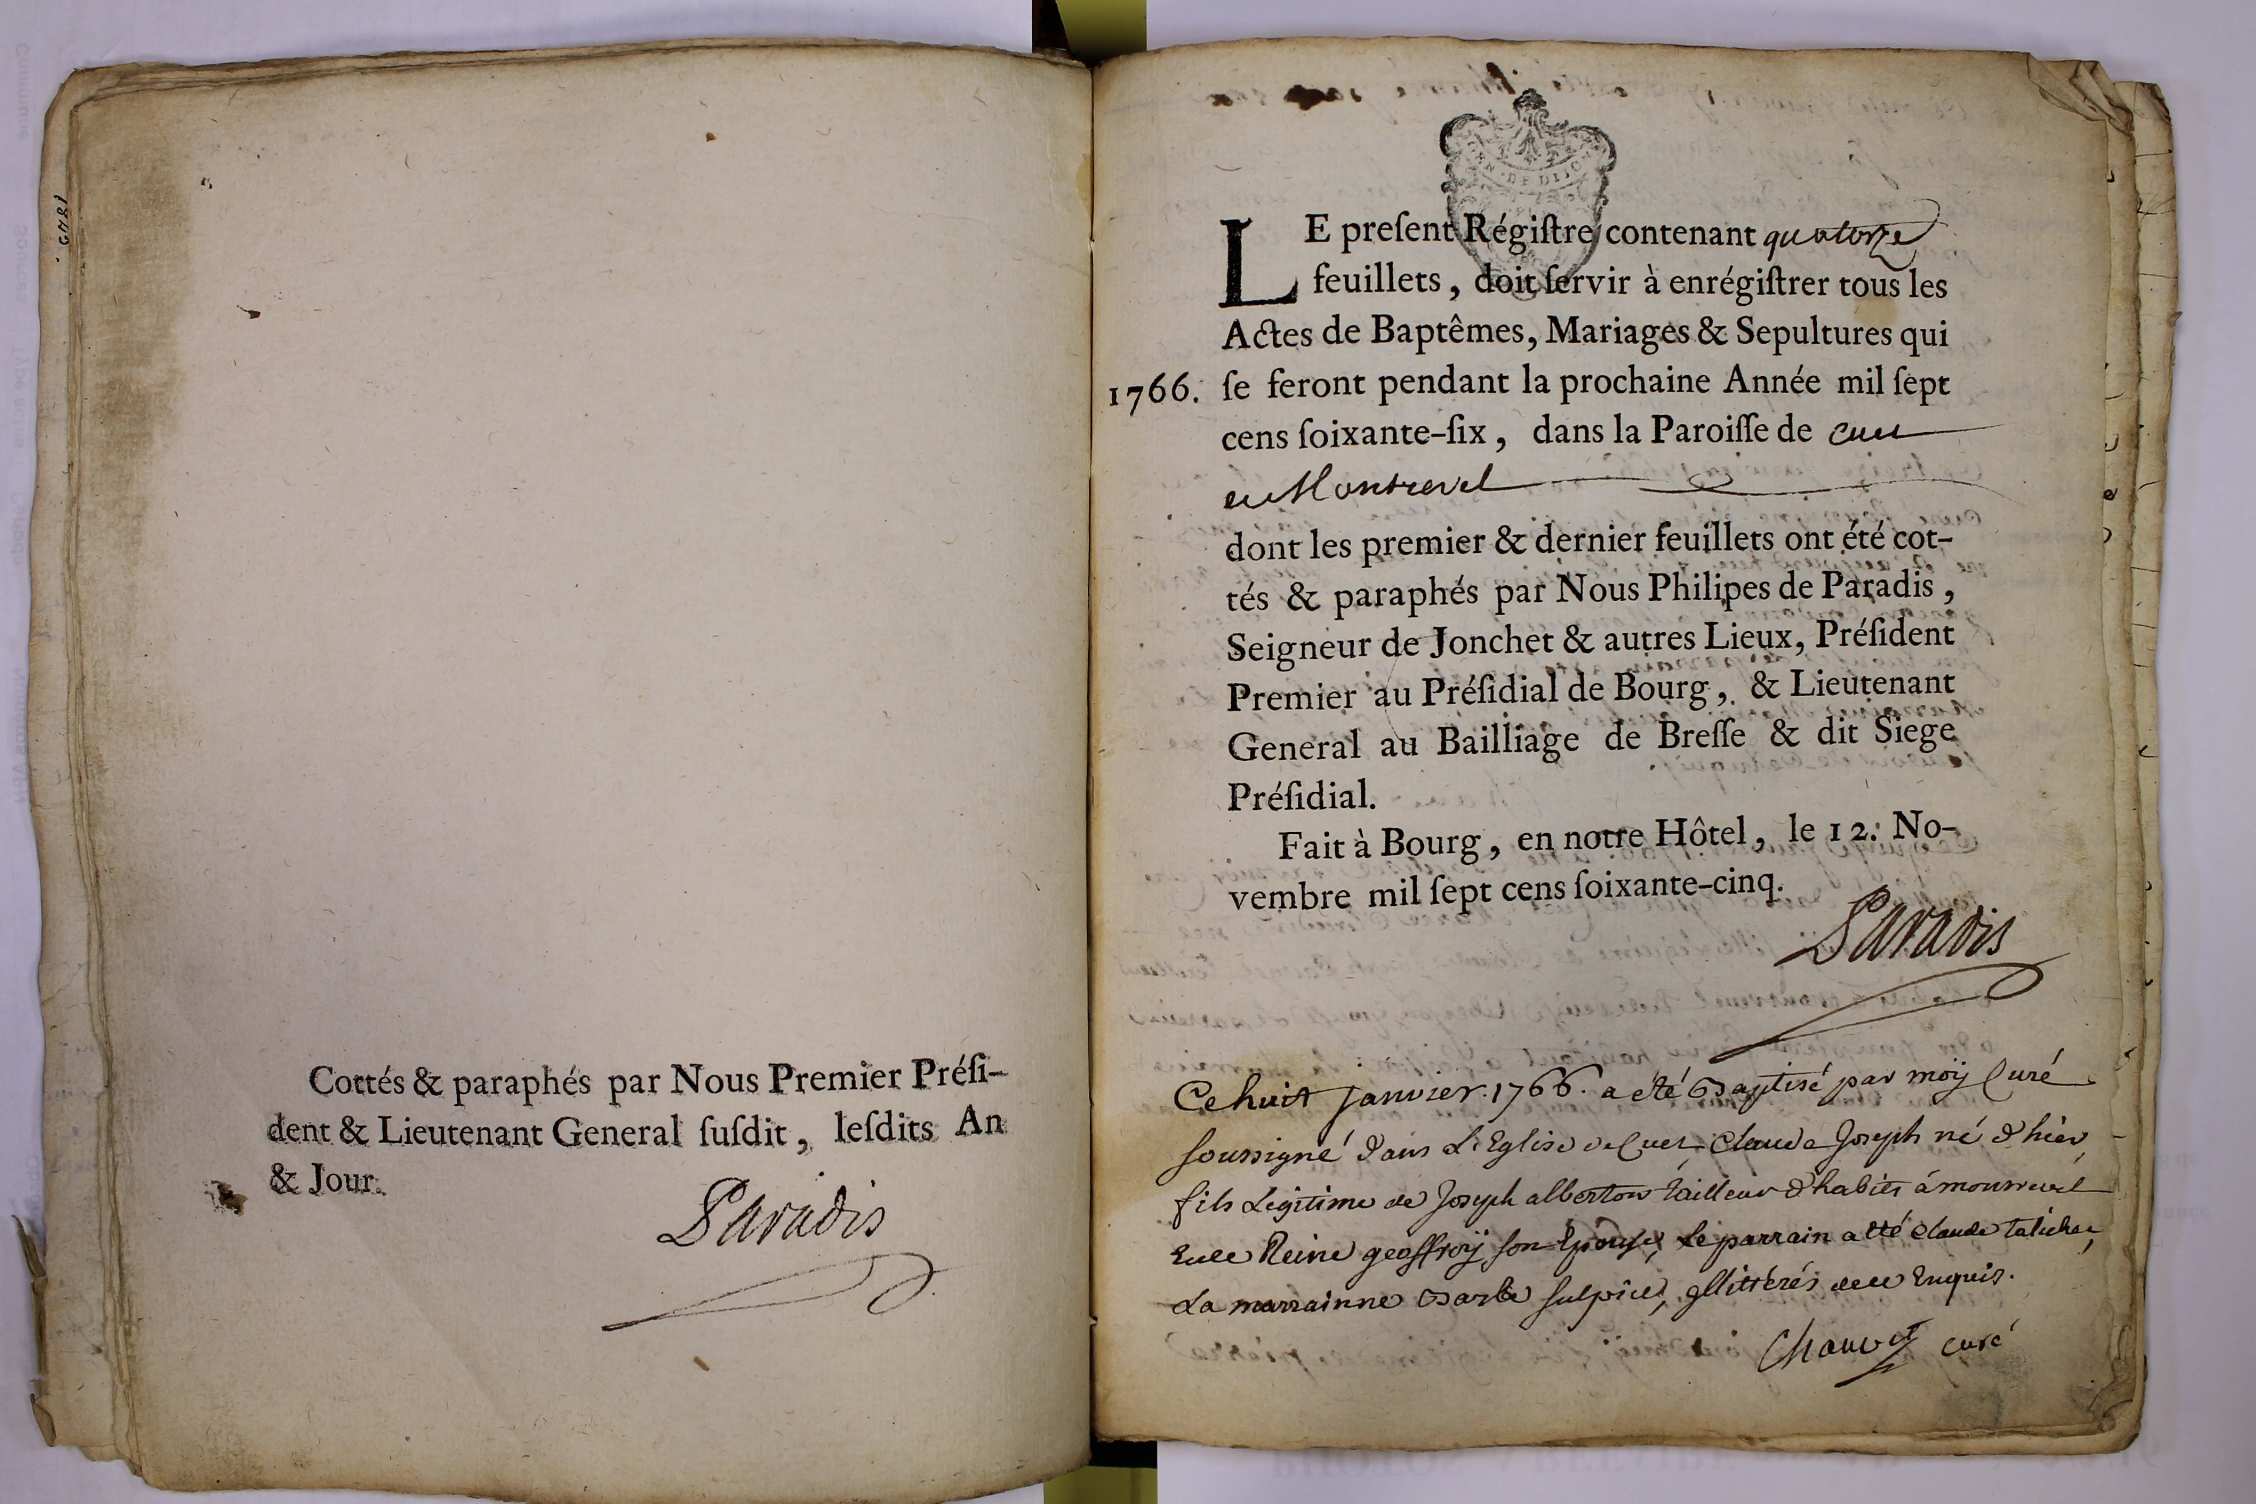 Cottés & paraphés par Nous Premier Préſi-
dent & Lieutenant General ſuſdit, leſdits An
& Jour.
Paradis
GEN · DE DIJON
LE preſent Régiſtre contenant quatorze
feuillets, doit ſervir à enrégiſtrer tous les
Actes de Baptêmes, Mariages & Sepultures qui
1766. ſe feront pendant la prochaine Année mil ſept
cens ſoixante-ſix, dans la Paroiſſe de
Montrevel
dont les premier & dernier feuillets ont été cot-
tés & paraphés par Nous Philipes de Paradis,
Seigneur de Jonchet & autres Lieux, Préſident
Premier au Préſidial de Bourg, & Lieutenant
General au Bailliage de Breſſe & dit Siege
Préſidial.
Fait à Bourg, en notre Hôtel, le 12. No-
vembre mil ſept cens ſoixante-cinq.
Paradis
Ce huit janvier 1766. a eté Baptisé par moÿ Curé
soussigné dans L'Eglise de Cuet Claude Joseph né d'hier
fils Legitime de Joseph alberton tailleur d'habits á monrevel
Reine geoffroÿ son Epouse, Le parrain a été Claude
La marrainne Barbe sulpice, Enquis.
Chauvet curé